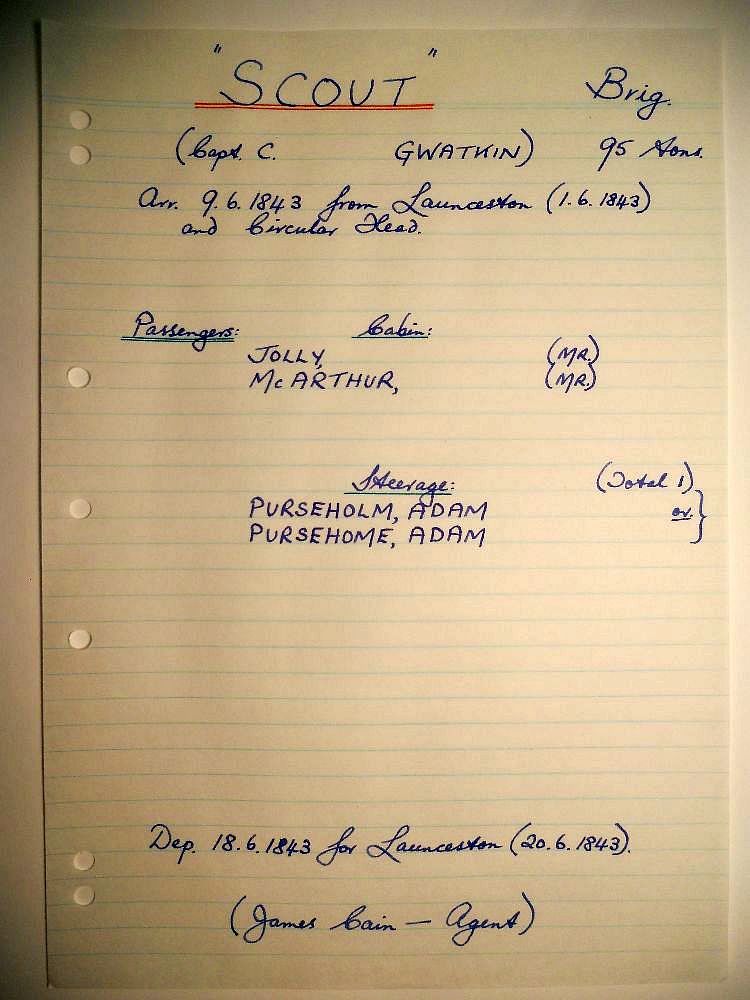 "SCOUT" Brig.
(Capt. C. GWATKIN) 95 Tons.
Arr. 9.6.1843 from Launceston (1.6.1843)
and Circular Head.
Passengers: Cabin:
JOLLY, (MR.)
McARTHUR, (MR.)
Steerage: (Total 1)
PURSEHOLM, ADAM or. }
PURSEHOME, ADAM
Dep. 18.6.1843 for Launceston (20.6.1843).
(James Cain — Agent)